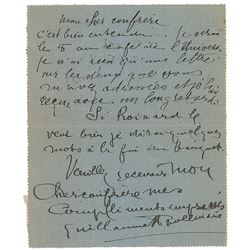 Mon cher confrère
c'est bien entendu. Je serai
le 5 au café de l'Univers.
Je n'ai reçu qu'une lettre
sur les deux que vous
m'avez adressées et je l'ai
reçue avec un long retard.
Si Roinard le
veut bien je dirai quelques
mots à la fin du banquet.
Veuillez recevoir mon
cher confrère mes
compliments empressés
Guillaume Apollinaire